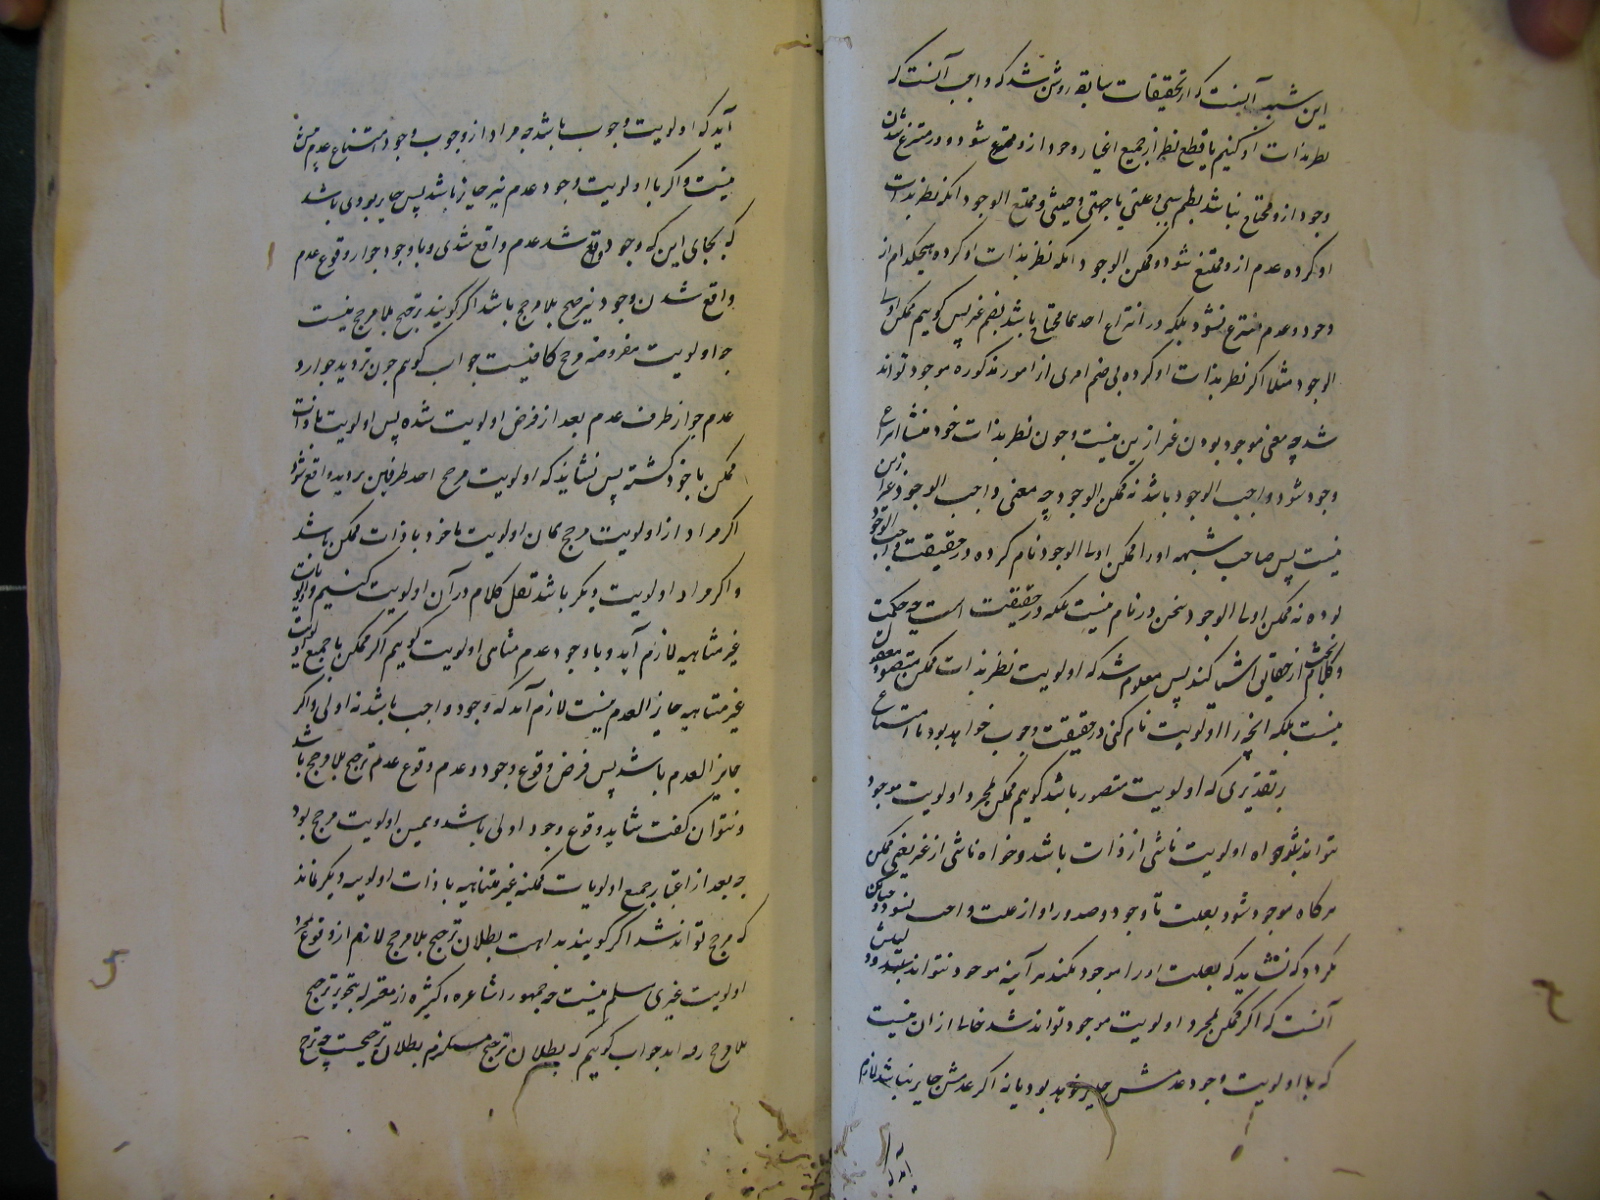 این شبهه آنست که از تحقیقات سابقه روشن شد که واجب آنست که
نظر بذات او کنیم با قطع نظر از جمیع اغیار وجود ازو منتزع شود و در منتزع شدن
وجود ازو محتاج نباشد بضم سببی و علتی یا جهتی و حیثیتی و ممتنع الوجود آنکه نظر بذات
او کرده عدم ازو منتزع شود و ممکن الوجود آنکه نظر بذات او کرده هیچکدام از
وجود و عدم منتزع نشود بلکه در انتزاع احدهما محتاج باشد بضم غیر پس کوییم ممکن اولی
الوجود مثلا اکر نظر بذات او کرده بی ضم امری از امور مذکوره موجود تواند
شد چه معنی موجود بودن غیر ازین نیست و چون نظر بذات خود منشا انتزاع
وجود شود واجب الوجود باشد نه ممکن الوجود چه معنی واجب الوجود غیر ازین
نیست پس صاحب شبهه او را ممکن اولی الوجود نام کرده در حقیقت واجب الوجود
بوده نه ممکن اولی الوجود سخن در نام نیست بلکه در حقیقت است چه حکمت
و کلام از حقایق اشیا کنند پس معلوم شد که اولویت نظر بذات ممکن متصور
نیست بلکه آنچه را اولویت نام کنی در حقیقت وجوب خواهد بود یا امتناع
بر تقدیری که اولویت متصور باشد کوییم ممکن بمجرد اولویت موجود
نتواند شد خواه اولویت ناشی از ذات باشد و خواه ناشی از غیر یعنی ممکن
هرکاه موجود شود بعلت تا وجود و صدور او از علت واجب نشود
نکردد که نشاید که بعلت او را موجود نکند هر آینه موجود نتواند شد
آنست که اکر ممکن بمجرد اولویت موجود تواند شد خالی ازان نیست
که با اولویت وجود عدمش جایز خواهد بود یا نه اکر عدمش جایز نباشد لازم
آید که اولویت وجوب باشد چه مراد از وجوب وجود امتناع عدم
نیست و اکر با اولویت وجود عدم نیز جایز باشد پس جایز بودی باشد
که بجای این که وجود واقع شد عدم واقع شدی و با وجود جواز وقوع عدم
واقع شدن وجود ترجیح بلا مرجح باشد اکر کویند ترجیح بلا مرجح نیست
چه اولویت مفروضه مرجح کافیست جواب کویم چون تردید جواز و
عدم جواز طرف عدم بعد از فرض اولویت شده پس اولویت با ذات
ممکن ماخوذ کشته پس نشاید که اولویت مرجح احد طرفین تردید واقع شود
اکر مراد از اولویت مرجح همان اولویت ماخوذ با ذات ممکن باشد
و اکر مراد اولویت دیکر باشد نقل کلام در آن اولویت کنیم و اولویات
غیر متناهیه لازم آید و با وجود عدم تناهی اولویت کوییم اکر ممکن با جمیع اولویات
غیر متناهیه جایز العدم نیست لازم آید که وجود واجب باشد نه اولی و اکر
جایز العدم باشد پس فرض وقوع وجود و عدم وقوع عدم ترجیح بلا مرجح باشد
و نتوان کفت شاید وقوع وجود اولی باشد و همین اولویت مرجح بود
چه بعد از اعتبار جمیع اولویات ممکنه غیر متناهیه با ذات اولویت دیکر نماند
که مرجح تواند شد اکر کویند بداهت بطلان ترجیح بلا مرجح لازم از وقوع بمجرد
اولویت غیری مسلم نیست چه جمهور اشاعره و کثیری از معتزله تجویز ترجیح
بلا مرجح کرده اند جواب کوییم که بطلان ترجیح مستلزم بطلان ترجحست چه ترجیح